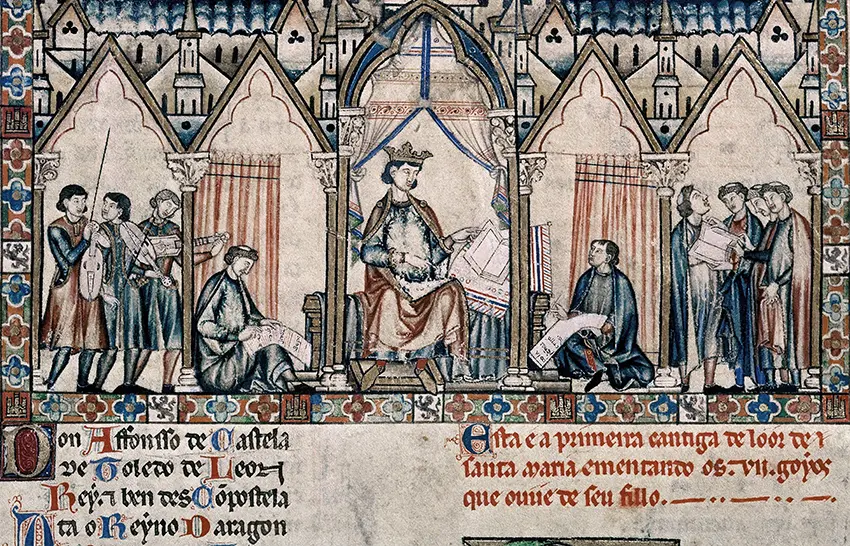 Don Affonsso de Castela
de Toledo de Leon
Rey. e ben des Cõpostela
Ata o Reyno Daragon
Esta e a primeira cantiga de loor de
santa maria ementando os. vii. goyos
que ouue de seu fillo.